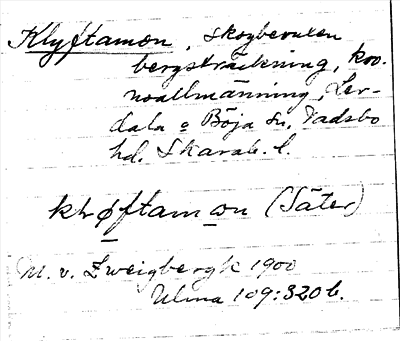 Klyftamon, skogbevuxen
bergsträckning, kro-
noallmänning, Ler-
dala o Böja sn, Vadsbo
hd. Skarab. l.
klyftamon (Säter)
M. v. Zweigbergk 1900
Ulma 109:320 b.